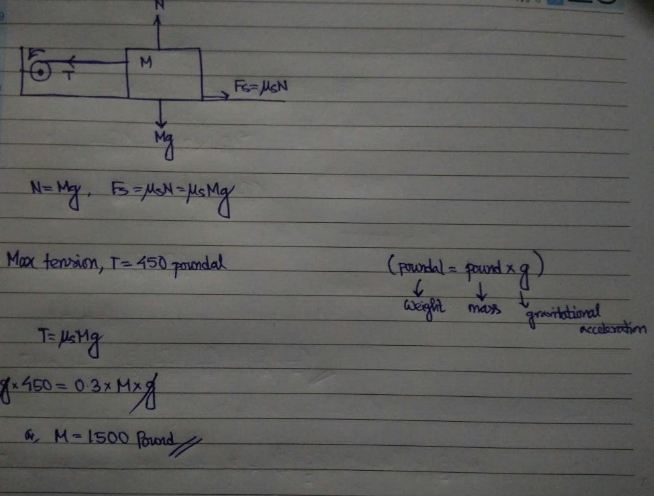 N
F
T
M
Fs=μsN
Mg
N=Mg, Fs=μsN=μsMg
Max tension, T=450 poundal
(poundal = pound×g)
weight mass gravitational acceleration
T=μsMg
g×450=0.3×M×g
or, M=1500 Pound